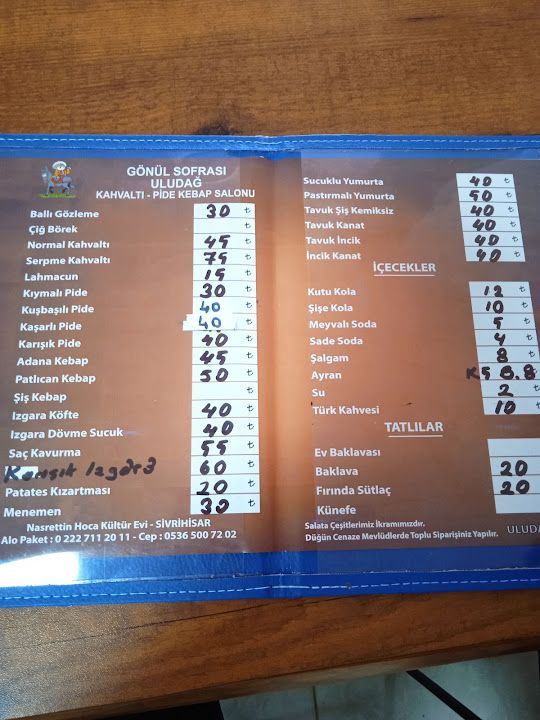 GÖNÜL SOFRASI
ULUDAĞ
KAHVALTI - PİDE KEBAP SALONU
Ballı Gözleme 30 ₺
Çiğ Börek ₺
Normal Kahvaltı 45 ₺
Serpme Kahvaltı 75 ₺
Lahmacun 15 ₺
Kıymalı Pide 30 ₺
Kuşbaşılı Pide 40 ₺
Kaşarlı Pide 40 ₺
Karışık Pide 40 ₺
Adana Kebap 45 ₺
Patlıcan Kebap 50 ₺
Şiş Kebap ₺
Izgara Köfte 40 ₺
Izgara Dövme Sucuk 40 ₺
Saç Kavurma 55 ₺
Karışık Izgara 60 ₺
Patates Kızartması 20 ₺
Menemen 30 ₺
Nasrettin Hoca Kültür Evi - SİVRİHİSAR
Alo Paket : 0 222 711 20 11 - Cep : 0536 500 72 02
Sucuklu Yumurta 40 ₺
Pastırmalı Yumurta 50 ₺
Tavuk Şiş Kemiksiz 40 ₺
Tavuk Kanat 40 ₺
Tavuk İncik 40 ₺
İncik Kanat 40 ₺
İÇECEKLER
Kutu Kola 12 ₺
Şişe Kola 10 ₺
Meyvalı Soda 5 ₺
Sade Soda 4 ₺
Şalgam 8 ₺
Ayran K5 B.8
Su 2 ₺
Türk Kahvesi 10 ₺
TATLILAR
Ev Baklavası
Baklava 20 ₺
Fırında Sütlaç 20 ₺
Künefe
Salata Çeşitlerimiz İkramımızdır.
Düğün Cenaze Mevlüdlerde Toplu Siparişiniz Yapılır.